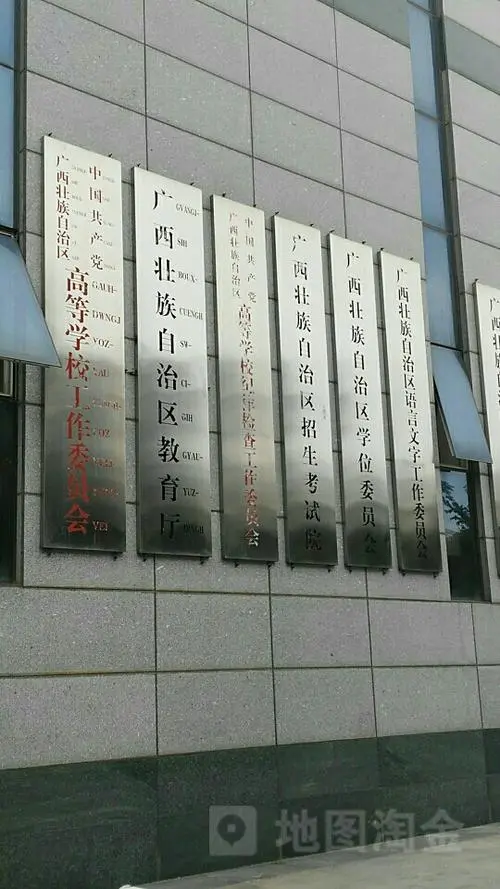 中国共产党
广西壮族自治区
高等学校工作委员会
GAUH-
DWNGJ
VOZ-
VEI
广西壮族自治区教育厅
GVANGJ-
SIH
BOUX-
CUENGH
SW-
CI-
GIH
GYAU-
YUZ-
DINGH
中国共产党
广西壮族自治区
高等学校纪律检查工作委员会
广西壮族自治区招生考试院
广西壮族自治区学位委员会
广西壮族自治区语言文字工作委员会
广西壮
地图淘金